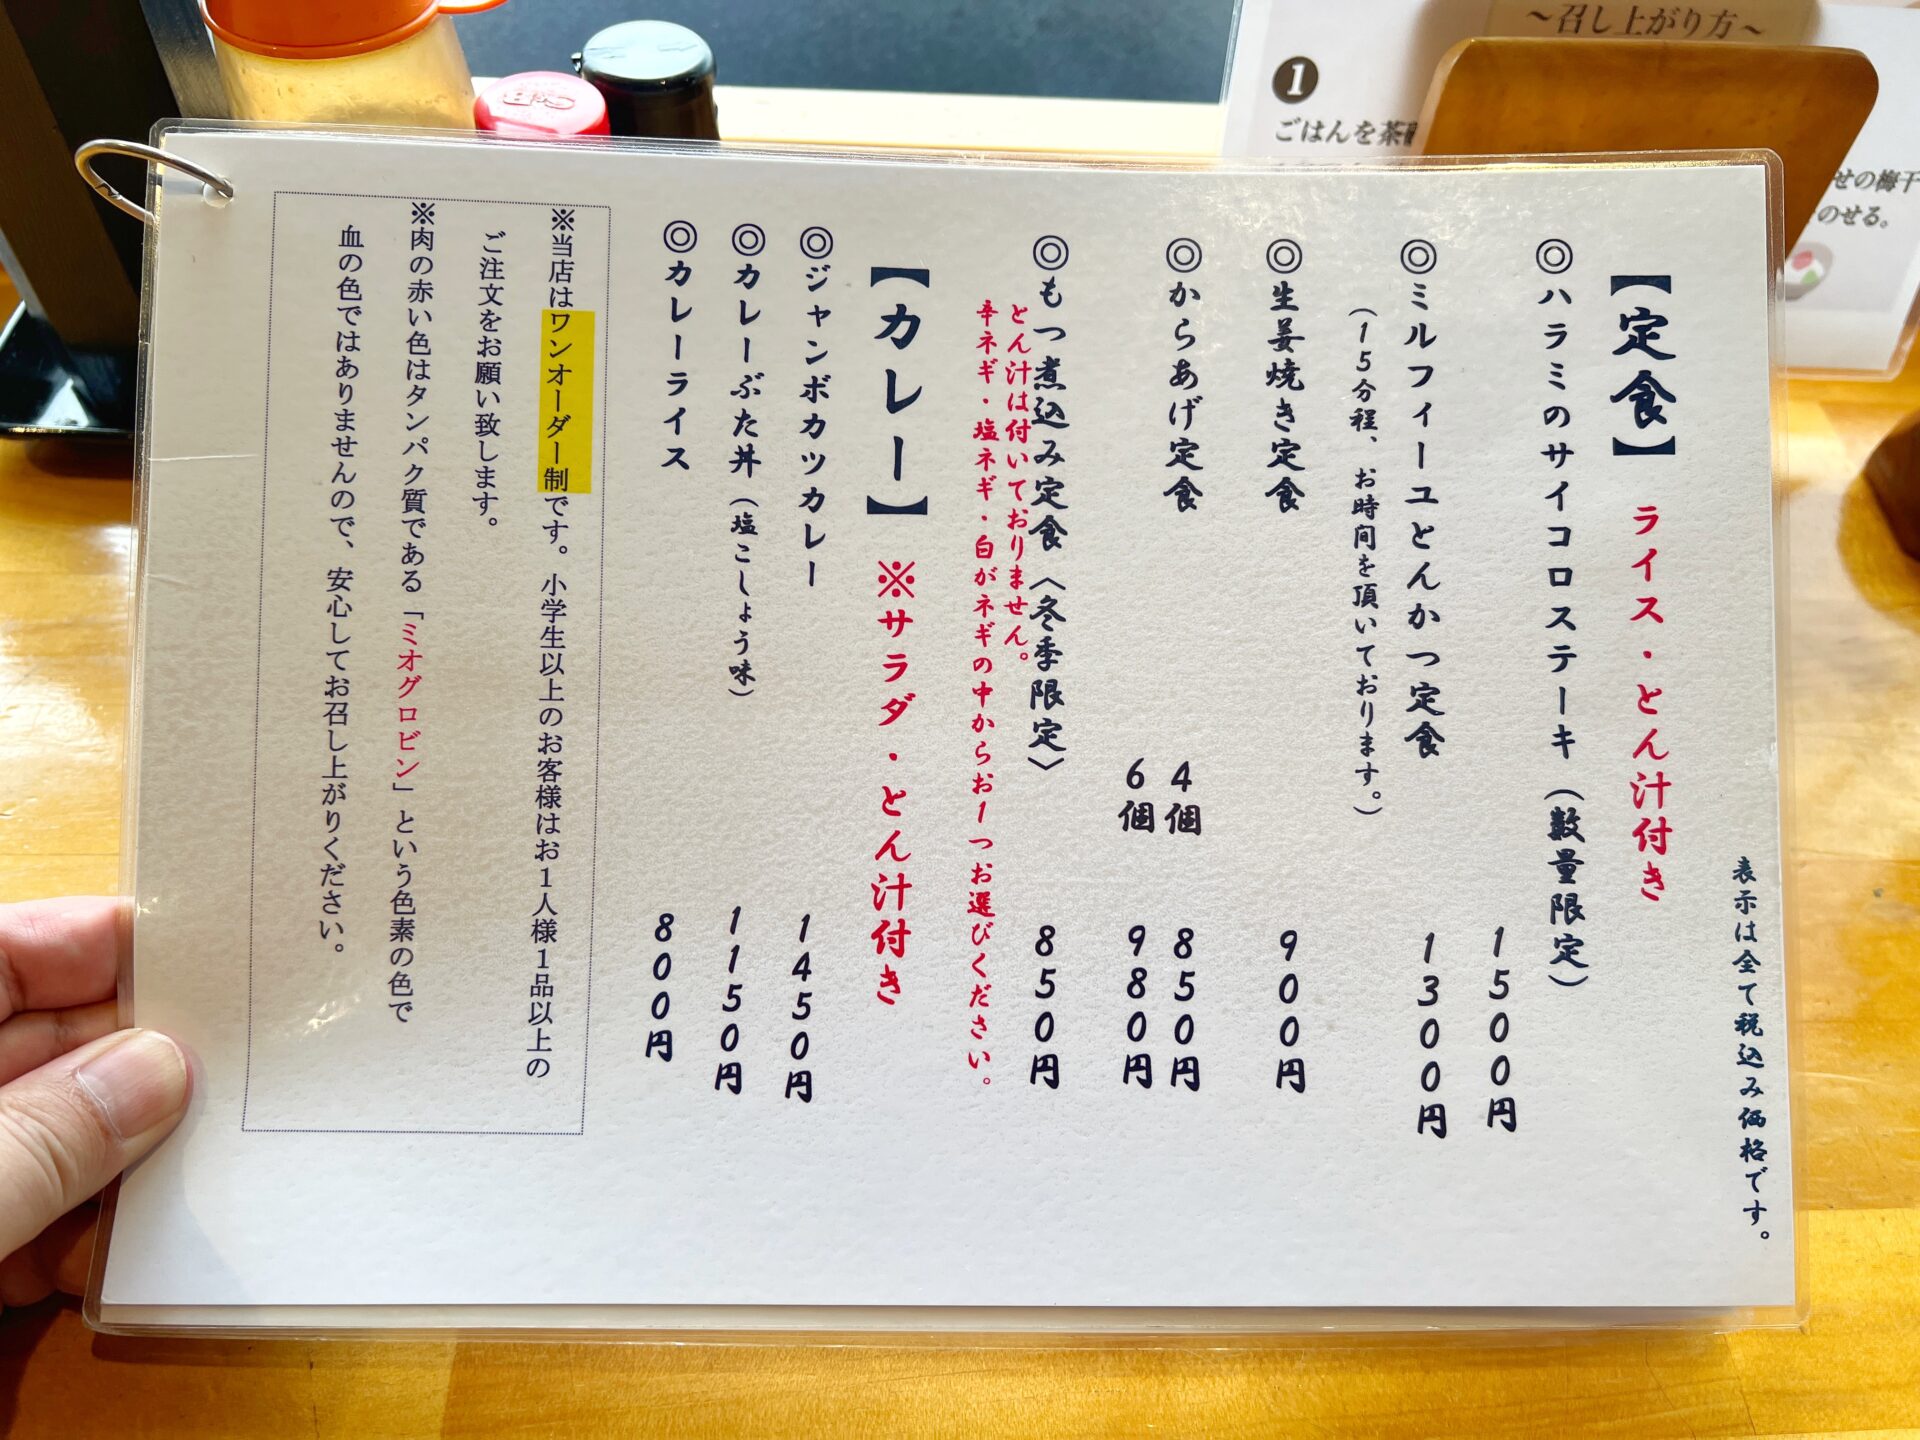 表示は全て税込み価格です。
【定食】 ライス・とん汁付き
◎ハラミのサイコロステーキ（数量限定）
1500円
◎ミルフィーユとんかつ定食
1300円
（15分程、お時間を頂いております。）
◎生姜焼き定食 900円
◎からあげ定食 4個 850円
6個 980円
◎もつ煮込み定食〈冬季限定〉 850円
とん汁は付いておりません。
辛ネギ・塩ネギ・白がネギの中からお1つお選びください。
【カレー】 ※サラダ・とん汁付き
◎ジャンボカツカレー 1450円
◎カレーぶた丼（塩こしょう味） 1150円
◎カレーライス 800円
※当店はワンオーダー制です。小学生以上のお客様はお1人様1品以上の
ご注文をお願い致します。
※肉の赤い色はタンパク質である「ミオグロビン」という色素の色で
血の色ではありませんので、安心してお召し上がりください。
～召し上がり方～
1
ごはんを茶
せの梅干
のせる。
S&B